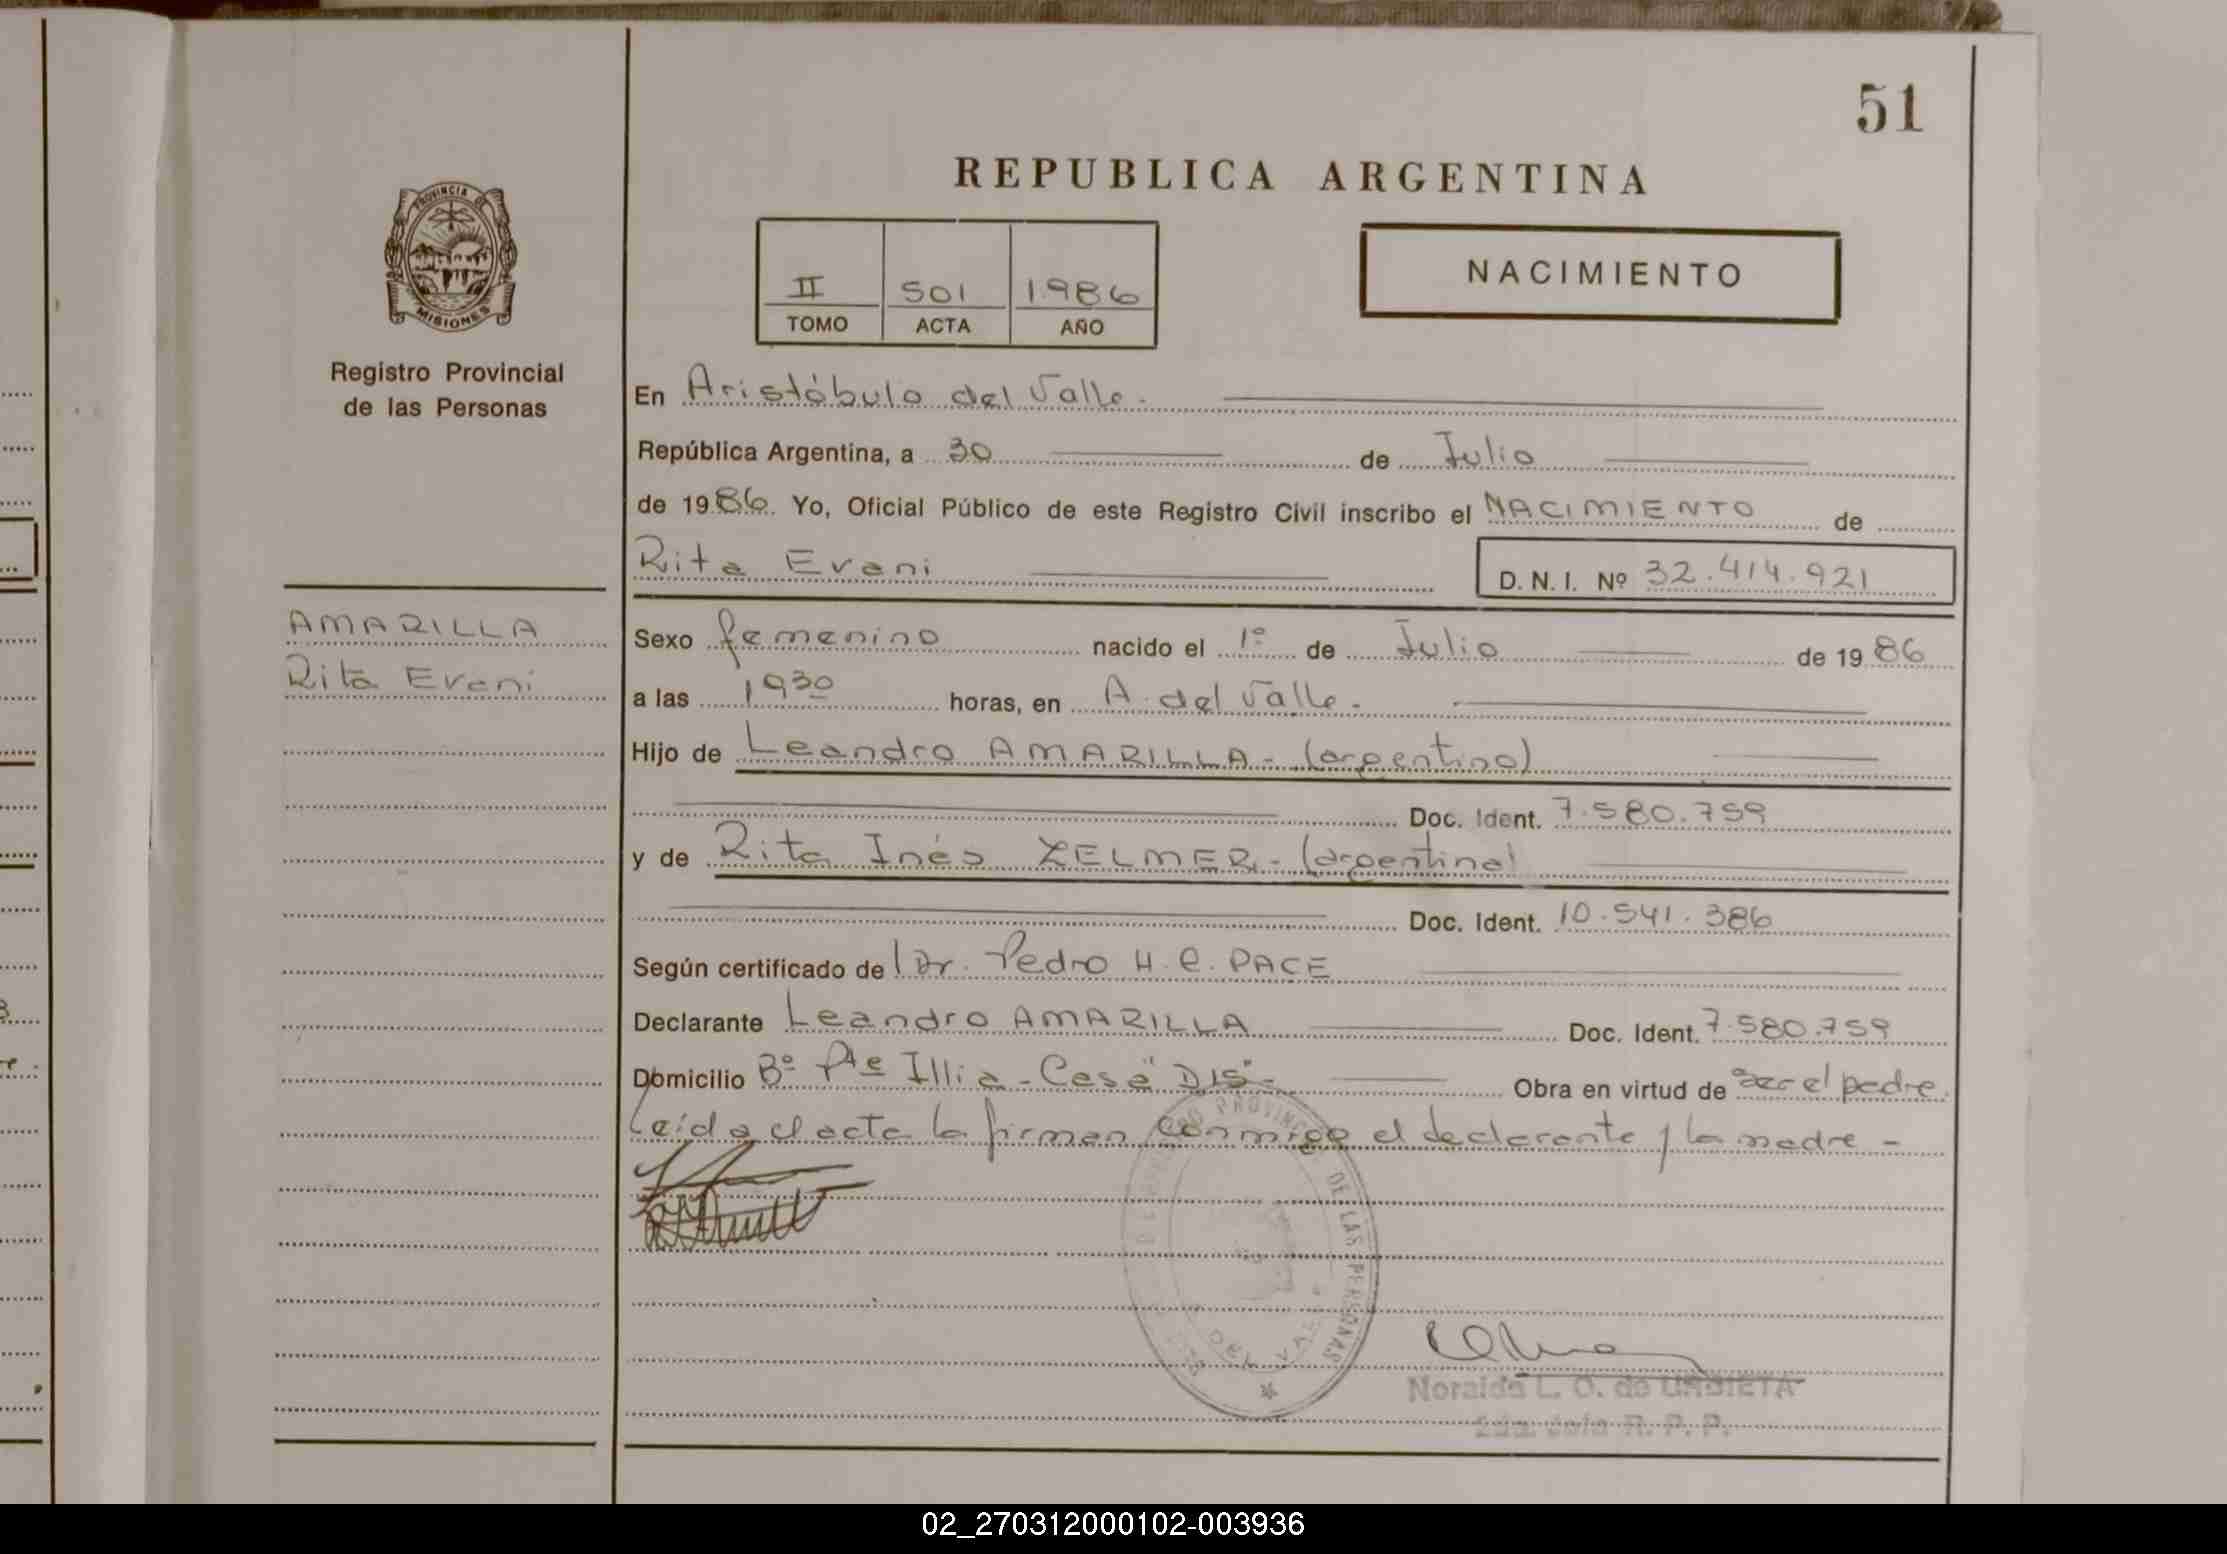 51
REPUBLICA ARGENTINA
PROVINCIA DE
MISIONES
Registro Provincial
de las Personas
II 501 1986
TOMO ACTA AÑO
NACIMIENTO
En Aristóbulo del Valle.
República Argentina, a 30 de Julio
de 1986. Yo, Oficial Público de este Registro Civil inscribo el NACIMIENTO de
Rita Evani D. N. I. Nº 32.414.921
AMARILLA
Rita Evani
Sexo femenino nacido el 1º de Julio de 1986
a las 1930 horas, en A. del Valle.
Hijo de Leandro AMARILLA - (argentino)
Doc. Ident. 7.580.759
y de Rita Inés ZELMER - (argentina)
Doc. Ident. 10.541.386
Según certificado de Dr. Pedro H. C. PACE
Declarante Leandro AMARILLA Doc. Ident. 7.580.759
Domicilio Bº Pte Illia - Casa "D15" - Obra en virtud de ser el padre.
Leída el acta la firman conmigo el declarante y la madre -
PROVINCIAL DE LAS PERSONAS
DEL VALLE
Noraida L. O. de URBIETA
2da. Jefe R. P. P.
02_270312000102-003936